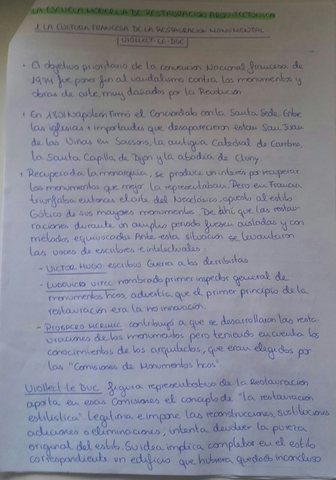 LA ESCUELA MODERNA DE RESTAURACION ARQUITECTONICA
1. LA CULTURA FRANCESA DE LA RESTAURACION MONUMENTAL
VIOLLECT LE DUC
• El objetivo prioritario de la convencion Nacional francesa de
1794 fue poner fin al vandalismo contra los monumentos y
obras de arte, muy dañados por la Revolucion
• En 1801 Napoleon firmo el Concordato con la Santa Sede. Entre
las iglesias + importantes que desaparecieron estan San Juan
de las Viñas en Soissons, la antigua Catedral de Cambrai,
la Santa Capilla de Dijon y la abadia de Cluny.
• Recuperada la monarquia, se produce un interes por recuperar
los monumentos que mejor la representaban. Pero en Francia
triunfaba entonces el arte del Neoclasico, opuesto al estilo
Gotico de sus mayores monumentos. De ahi que las restau-
raciones durante un amplio periodo fuesen aisladas y con
metodos equivocados. Ante esta situacion se levantaron
las voces de escritores e intelectuales:
- VICTOR HUGO: escribio Guerra a los demoledores
- LUDOVIC VITEC: nombrado primer inspector general de
monumentos hcos, advertia que el primer principio de la
restauracion era la no innovacion.
- PROSPERO MERIMEE: contribuyo a que se desarrollaran las resta-
uraciones de los monumentos pero teniendo en cuenta los
conocimientos de los arquitectos, que eran elegidos por
las "Comisiones de Monumentos hcos"
Viollect-le Duc figura representativa de la Restauracion
aporta en esas Comisiones el concepto de "la restauracion
estilistica". Legitima e impone las reconstrucciones, sustituciones
adiciones o eliminaciones, intenta devolver la pureza
original del estilo. Su idea implica completar en el estilo
correspondiente un edificio que hubiera quedado inconcluso